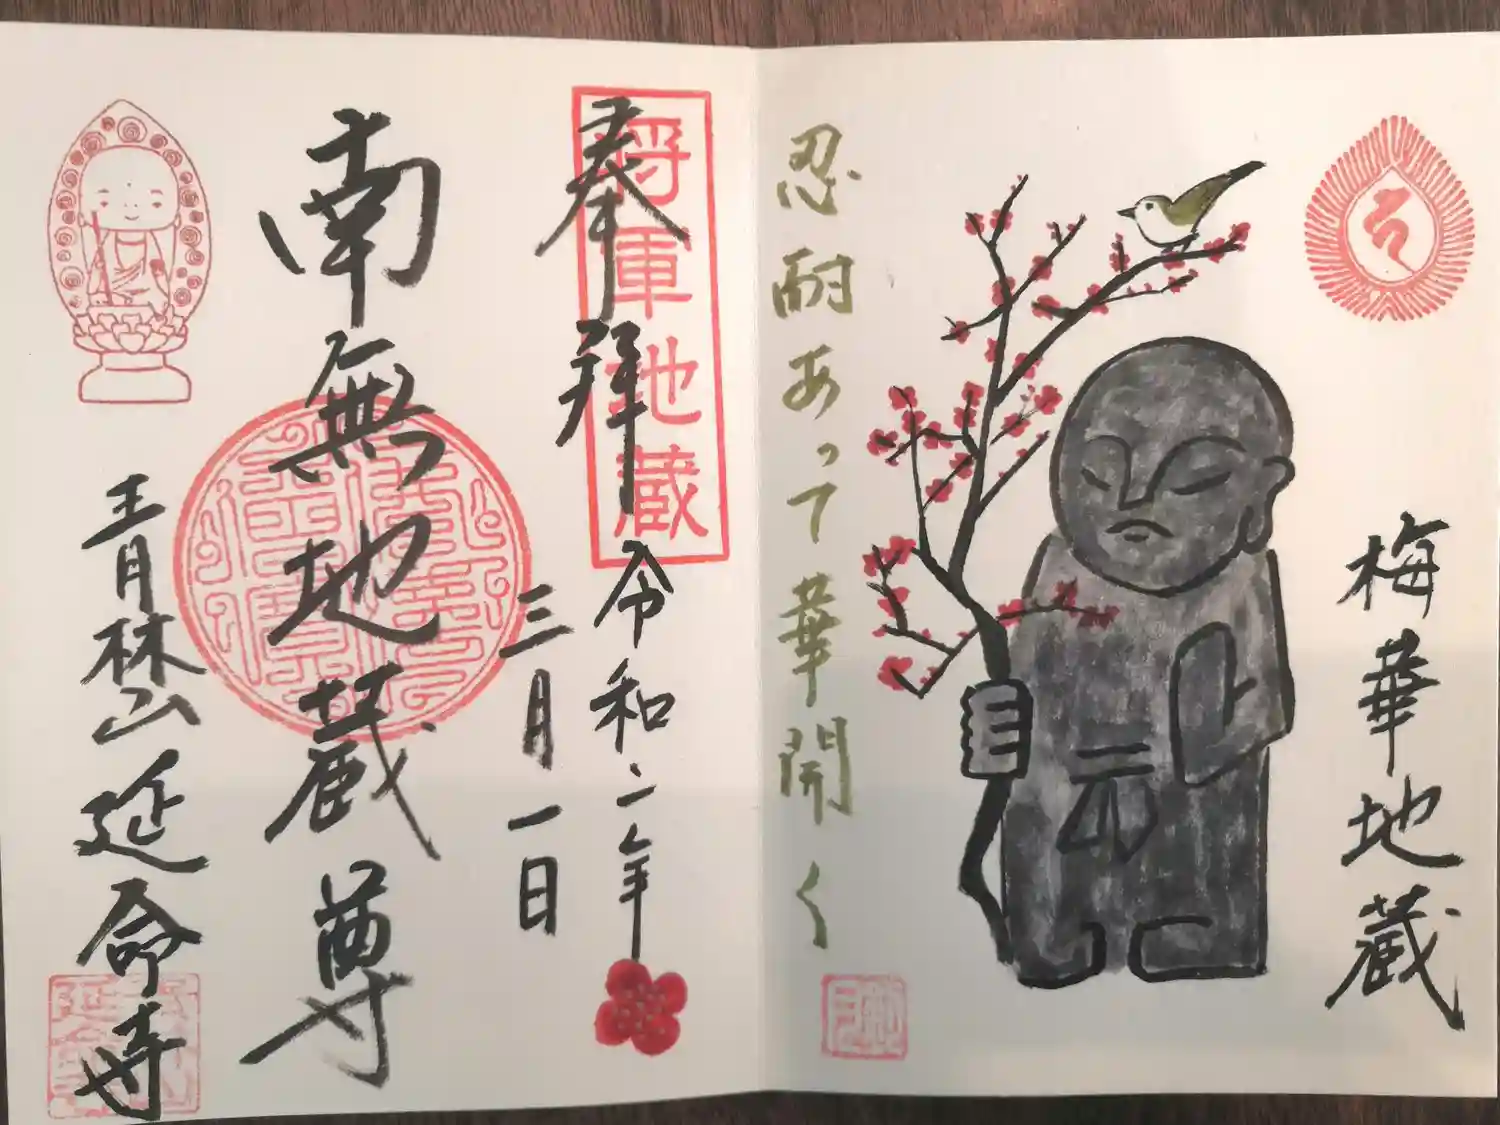 梅華地蔵
忍耐あって華開く
奉拝
将軍地蔵
令和二年
三月一日
南無地蔵尊
青林山延命寺